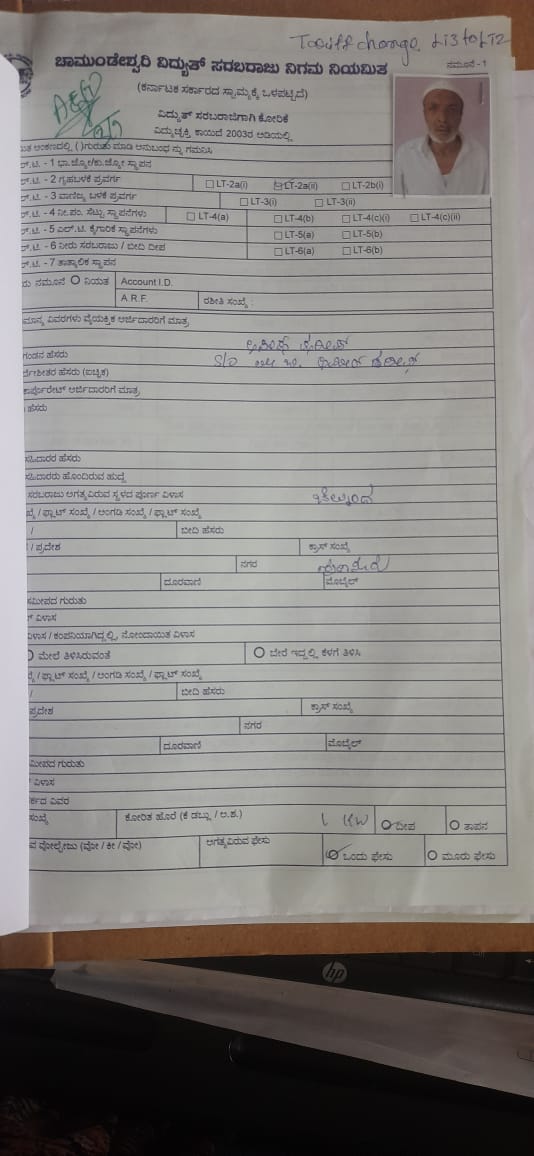 Tariff change Lt3 to Lt2
ನಮೂನೆ - 1
ಚಾಮುಂಡೇಶ್ವರಿ ವಿದ್ಯುತ್ ಸರಬರಾಜು ನಿಗಮ ನಿಯಮಿತ
(ಕರ್ನಾಟಕ ಸರ್ಕಾರದ ಸ್ವಾಮ್ಯಕ್ಕೆ ಒಳಪಟ್ಟಿದೆ)
ವಿದ್ಯುತ್ ಸರಬರಾಜಿಗಾಗಿ ಕೋರಿಕೆ
ವಿದ್ಯುಚ್ಛಕ್ತಿ ಕಾಯಿದೆ 2003ರ ಅಡಿಯಲ್ಲಿ
ಅಂಕಣದಲ್ಲಿ ( )ಗುರುತು ಮಾಡಿ ಅನುಬಂಧ ನ್ನು ಗಮನಿಸಿ
ಲ್.ಟಿ. - 1 ಭಾ.ಜ್ಯೋ/ಕು.ಜ್ಯೋ ಸ್ಥಾಪನ
ಲ್.ಟಿ. - 2 ಗೃಹಬಳಕೆ ಪ್ರವರ್ಗ LT-2a(i) LT-2a(ii) LT-2b(i)
ಲ್.ಟಿ. - 3 ವಾಣಿಜ್ಯ ಬಳಕೆ ಪ್ರವರ್ಗ LT-3(i) LT-3(ii)
ಲ್.ಟಿ. - 4 ನೀ.ಪಂ. ಸೆಟ್ಟು ಸ್ಥಾಪನೆಗಳು LT-4(a) LT-4(b) LT-4(c)(i) LT-4(c)(ii)
ಲ್.ಟಿ. - 5 ಎಲ್.ಟಿ. ಕೈಗಾರಿಕೆ ಸ್ಥಾಪನೆಗಳು LT-5(a) LT-5(b)
ಲ್.ಟಿ. - 6 ನೀರು ಸರಬರಾಜು / ಬೀದಿ ದೀಪ LT-6(a) LT-6(b)
ಲ್.ಟಿ. - 7 ತಾತ್ಕಾಲಿಕ ಸ್ಥಾಪನ
ರು ನಮೂನೆ ನಿಯತ Account I.D.
A.R.F. ರಶೀತಿ ಸಂಖ್ಯೆ :
ಮಾನ್ಯ ವಿವರಗಳು ವೈಯಕ್ತಿಕ ಅರ್ಜಿದಾರರಿಗೆ ಮಾತ್ರ
ಗಂಡನ ಹೆಸರು S/o
ಹೆಸರು (ಐಚ್ಛಿಕ)
ಕಾರ್ಪೊರೇಟ್ ಅರ್ಜಿದಾರರಿಗೆ ಮಾತ್ರ
ಹೆಸರು
ಸಹಿದಾರರ ಹೆಸರು
ಸಹಿದಾರರು ಹೊಂದಿರುವ ಹುದ್ದೆ
ಸರಬರಾಜು ಅಗತ್ಯವಿರುವ ಸ್ಥಳದ ಪೂರ್ಣ ವಿಳಾಸ
ಖ್ಯೆ / ಫ್ಲಾಟ್ ಸಂಖ್ಯೆ / ಅಂಗಡಿ ಸಂಖ್ಯೆ / ಪ್ಲಾಟ್ ಸಂಖ್ಯೆ
/ ಬೀದಿ ಹೆಸರು
/ ಪ್ರದೇಶ ಕ್ರಾಸ್ ಸಂಖ್ಯೆ
ನಗರ
ದೂರವಾಣಿ ಮೊಬೈಲ್
ಸಮೀಪದ ಗುರುತು
ವಿಳಾಸ
ವಿಳಾಸ / ಕಂಪನಿಯಾಗಿದ್ದಲ್ಲಿ, ನೋಂದಾಯಿತ ವಿಳಾಸ
ಮೇಲೆ ತಿಳಿಸಿರುವಂತೆ ಬೇರೆ ಇದ್ದಲ್ಲಿ ಕೆಳಗೆ ತಿಳಿಸಿ
ಖ್ಯೆ / ಫ್ಲಾಟ್ ಸಂಖ್ಯೆ / ಅಂಗಡಿ ಸಂಖ್ಯೆ / ಪ್ಲಾಟ್ ಸಂಖ್ಯೆ
/ ಬೀದಿ ಹೆಸರು
ಪ್ರದೇಶ ಕ್ರಾಸ್ ಸಂಖ್ಯೆ
ನಗರ
ದೂರವಾಣಿ ಮೊಬೈಲ್
ಮೀಪದ ಗುರುತು
ವಿಳಾಸ
ರ್ಕದ ವಿವರ
ಸಂಖ್ಯೆ ಕೋರಿತ ಹೊರೆ (ಕೆ ಡಬ್ಲು / ಅ.ಶ.) 1 KW ದೀಪ ತಾಪನ
ವ ವೋಲ್ಟೇಜು (ವೋ / ಕೀ / ವೋ) ಅಗತ್ಯವಿರುವ ಫೇಸು ಒಂದು ಫೇಸು ಮೂರು ಫೇಸು
hp